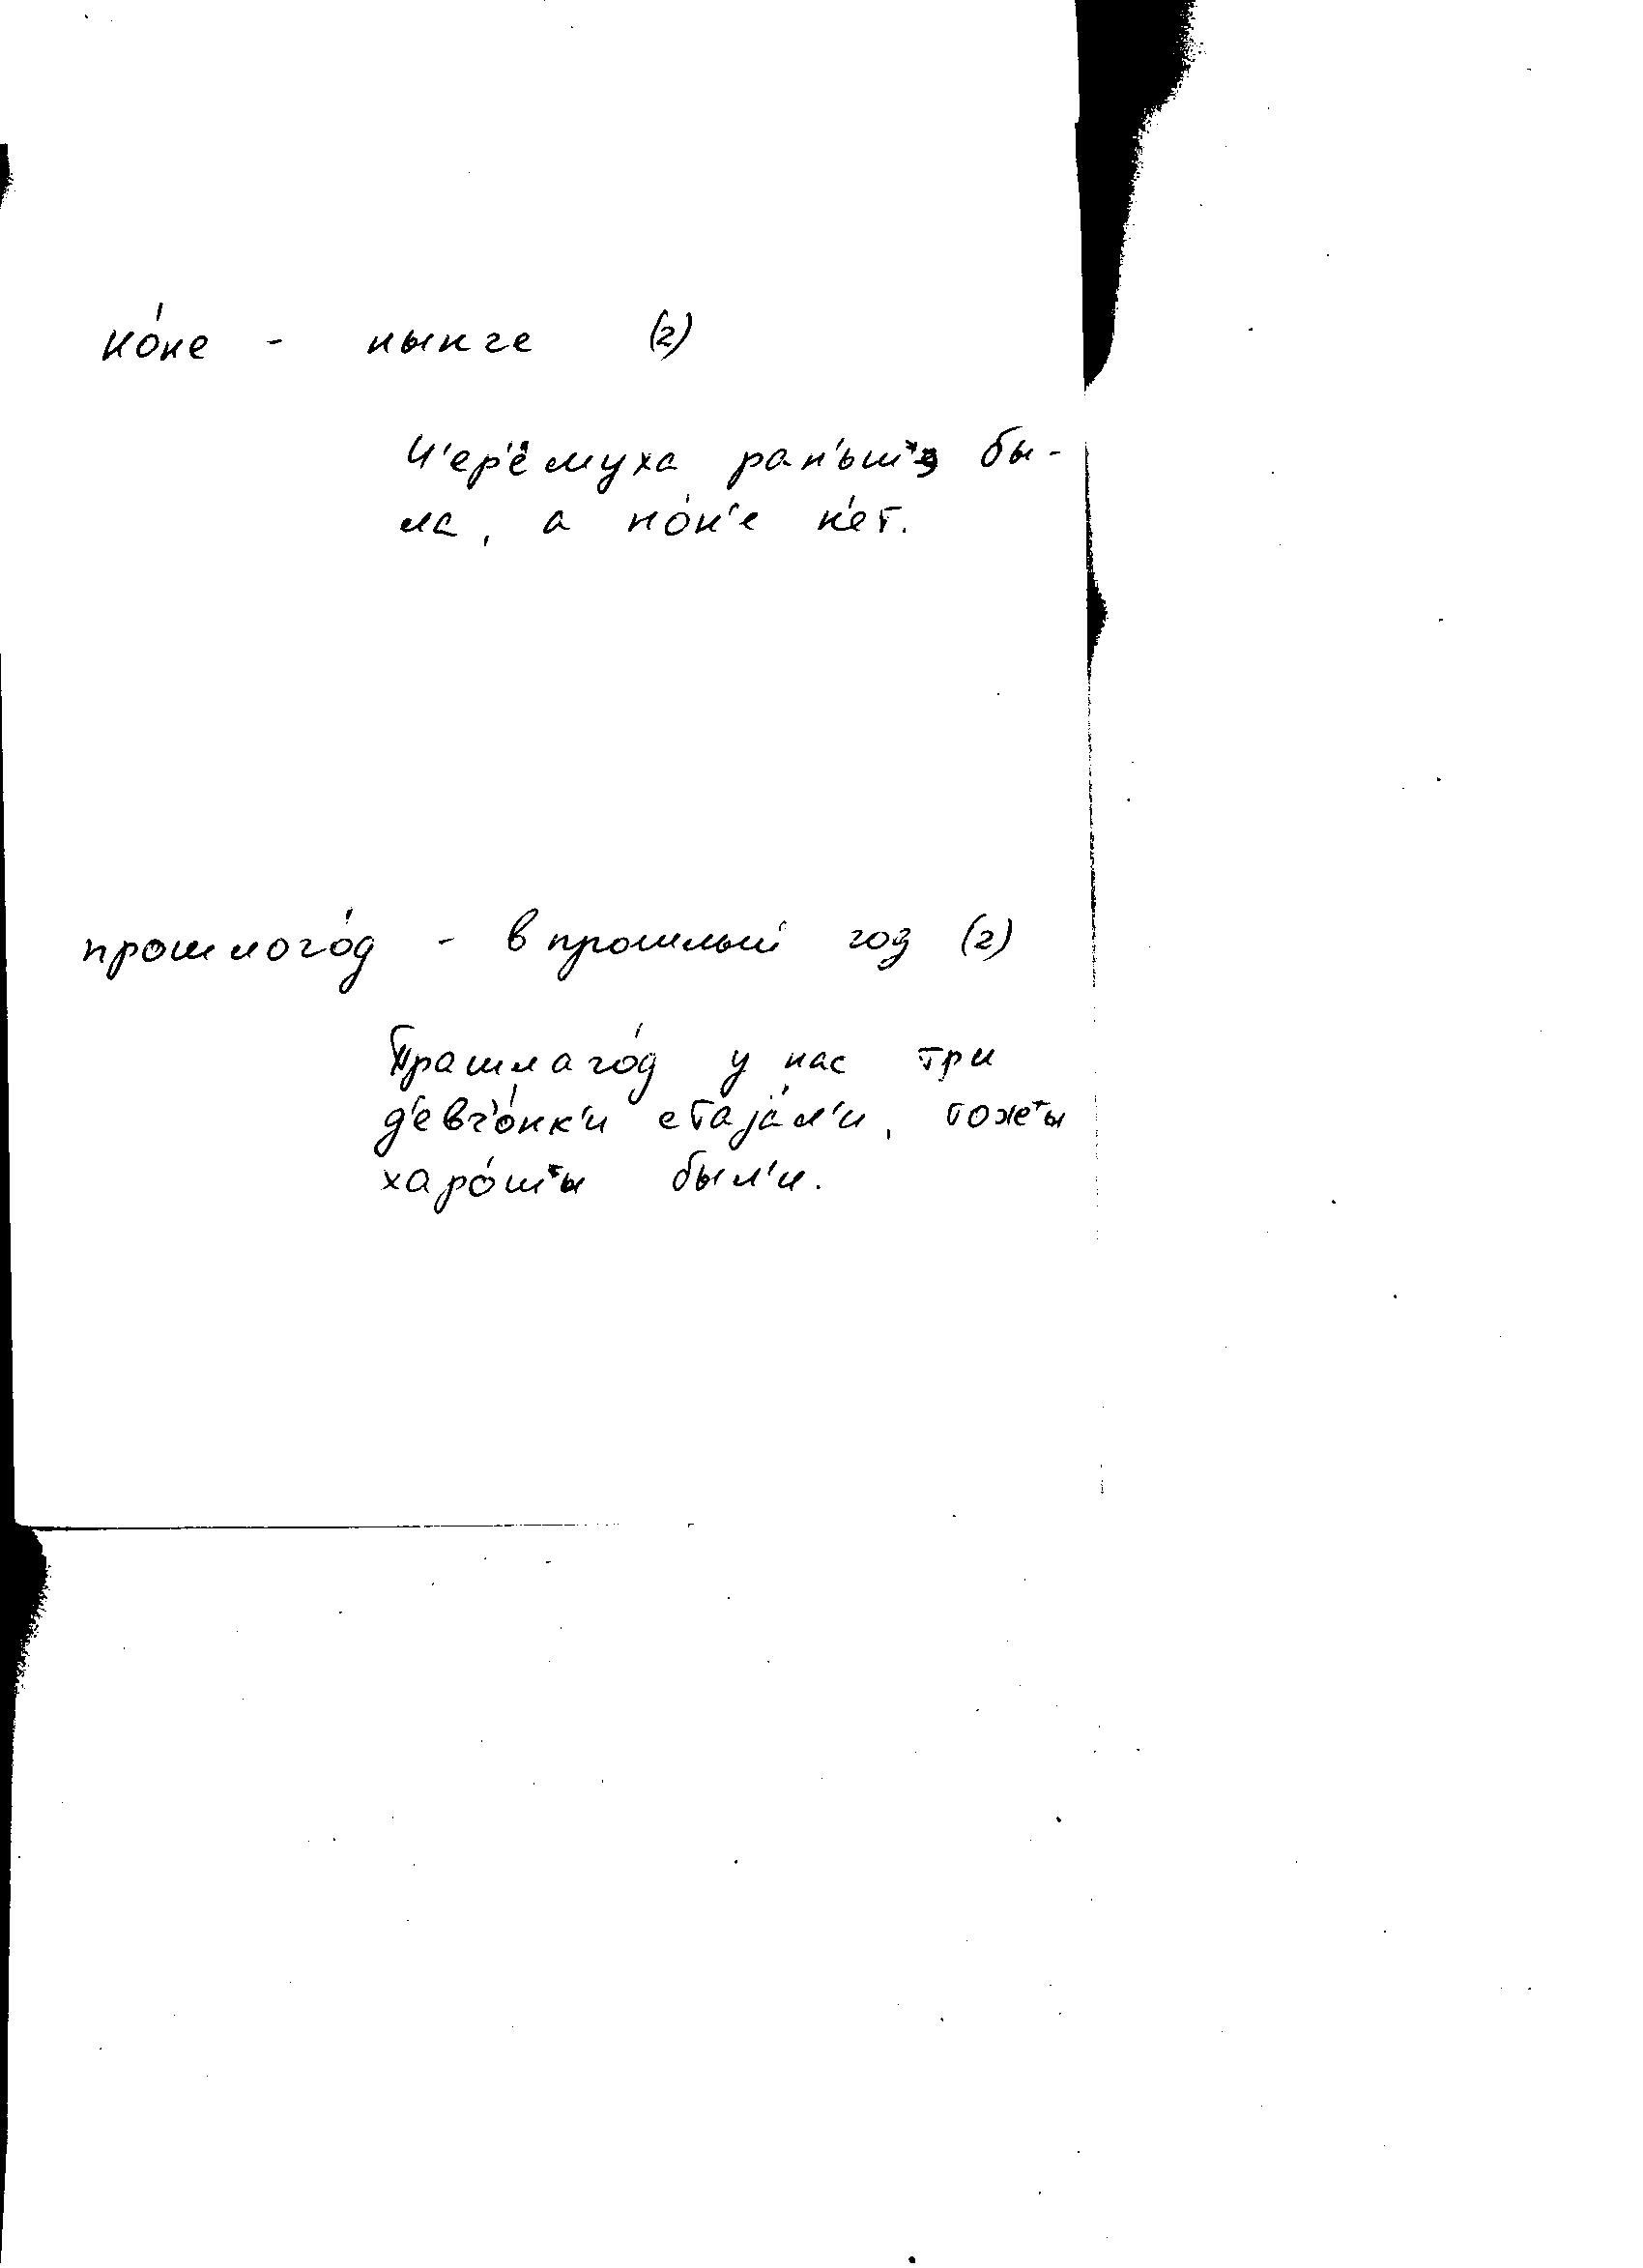 но́не - нынче (2)
Ч'ер'ёмуха ран'ьшъэ бы-
ла, а но́н'е н'ет.
прошлого́д - в прошлый год (2)
Прашлаго́д у нас три
д'евч'о́нк'и стаjа́л'и, тожъы
харо́шъы был'и.